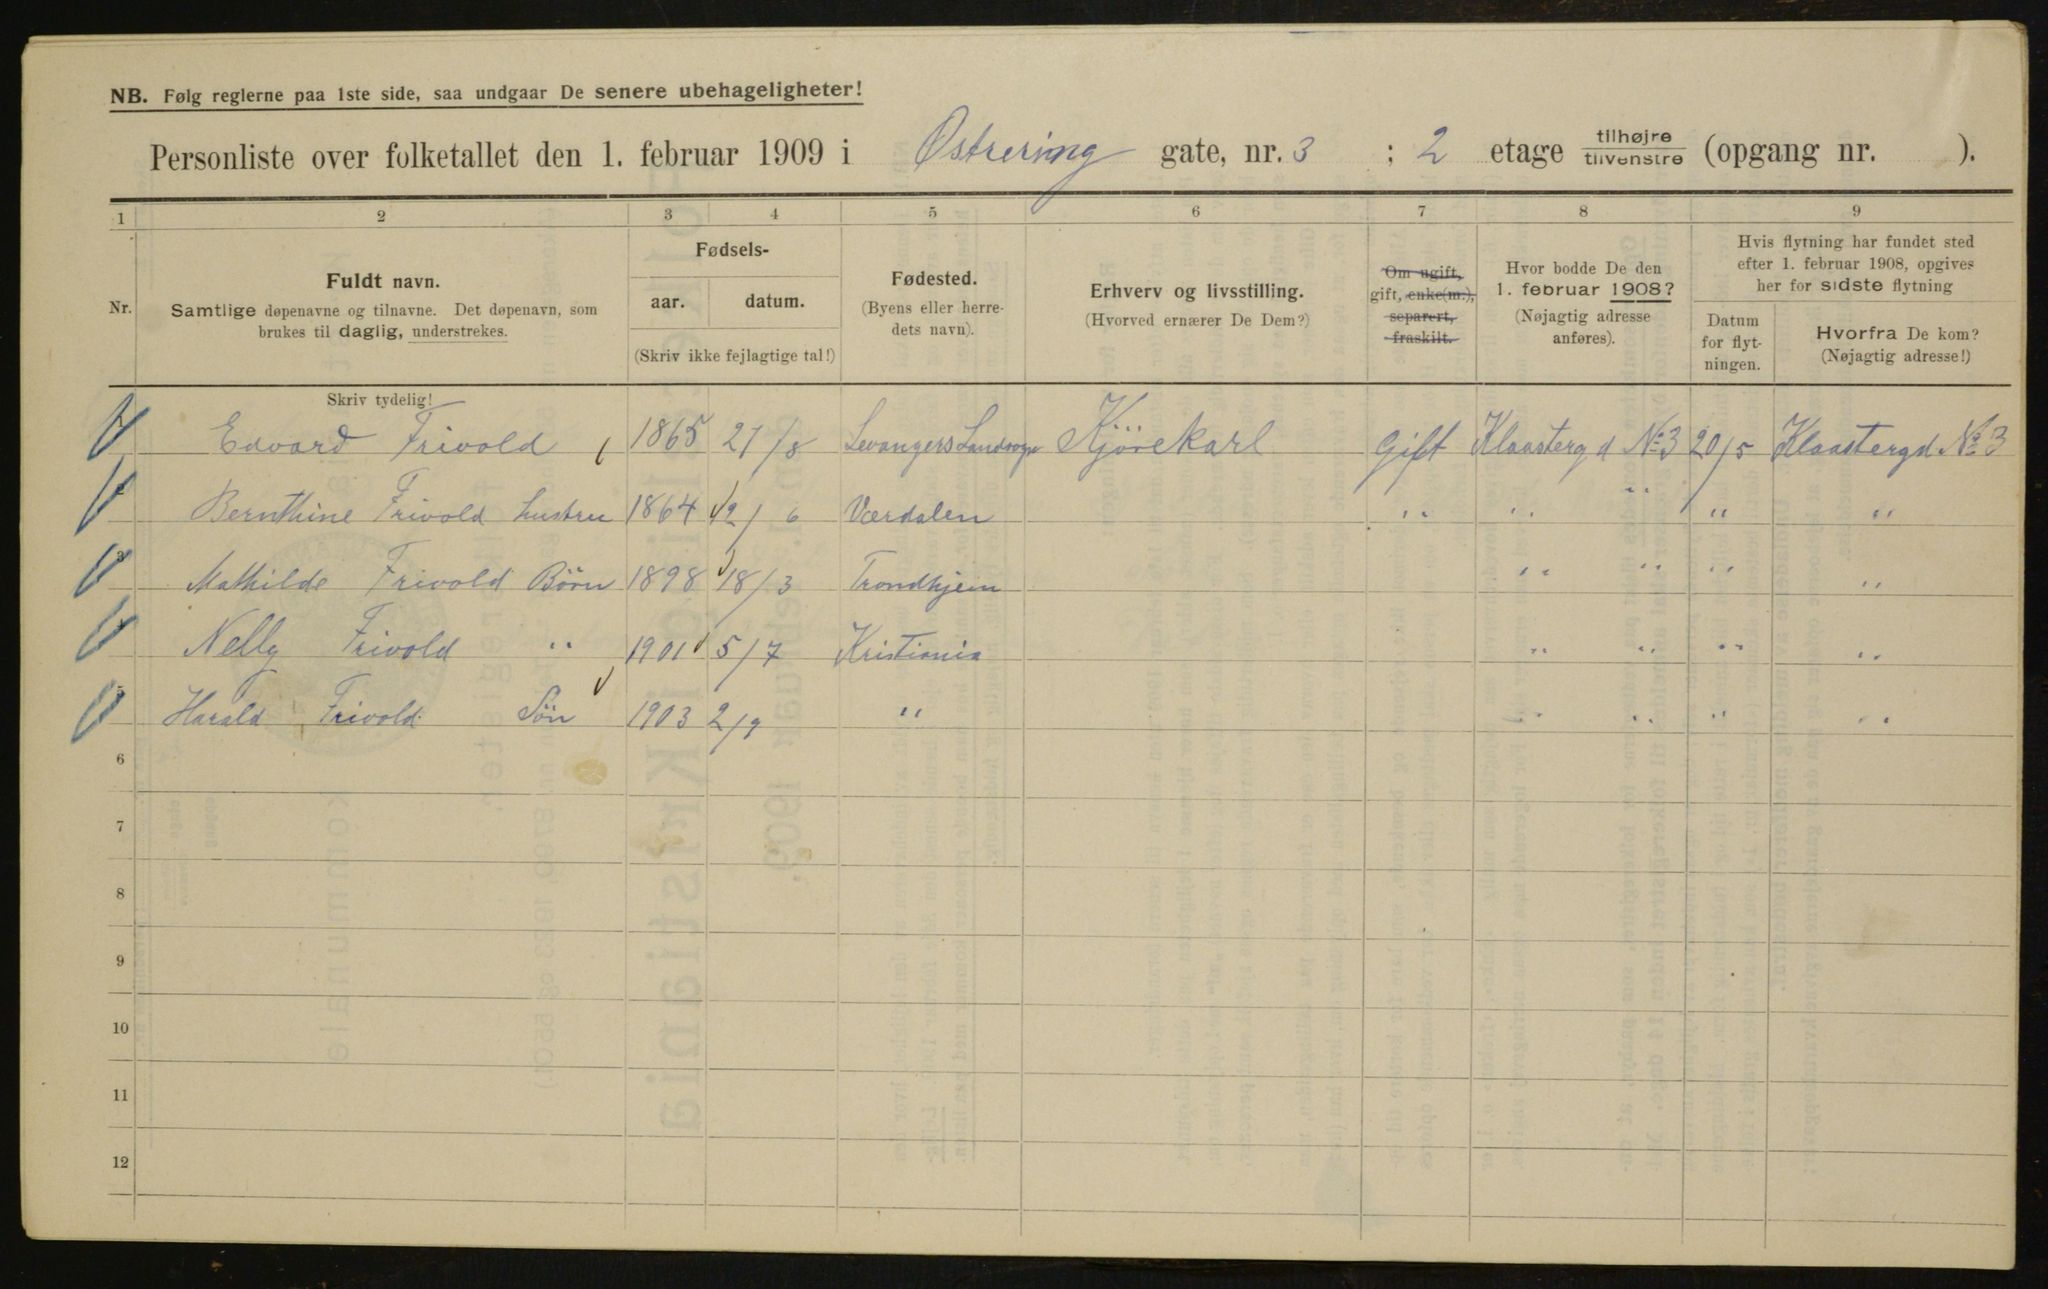 NB. Følg reglerne paa 1ste side, saa undgaar De senere ubehageligheter!
Personliste over folketallet den 1. februar 1909 i Østrering gate, nr. 3 ; 2 etage tilhøjre/tilvenstre (opgang nr. ).
1 2 3 4 5 6 7 8 9
Nr.
Fuldt navn.
Samtlige døpenavne og tilnavne. Det døpenavn, som
brukes til daglig, understrekes.
Fødsels-
aar. datum.
(Skriv ikke fejlagtige tal!)
Fødested.
(Byens eller herre-
dets navn).
Erhverv og livsstilling.
(Hvorved ernærer De Dem?)
Om ugift,
gift, enke(m.),
separert,
fraskilt.
Hvor bodde De den
1. februar 1908?
(Nøjagtig adresse
anføres).
Hvis flytning har fundet sted
efter 1. februar 1908, opgives
her for sidste flytning
Datum
for flyt-
ningen.
Hvorfra De kom?
(Nøjagtig adresse!)
Skriv tydelig!
Edvard Frivold 1865 21/8 Levangers Landsogn Kjörekarl Gift Klaastergd No 3 20/5 Klaastergd No 3
2 Bernthine Frivold hustru 1864 12/6 Værdalen " " " " "
3 Mathilde Frivold Börn 1898 18/3 Trondhjem " " " "
Nelly Frivold " 1901 5/7 Kristiania " " " "
5 Harald Frivold Sön 1903 2/9 " " " " "
6
7
8
9
10
11
12